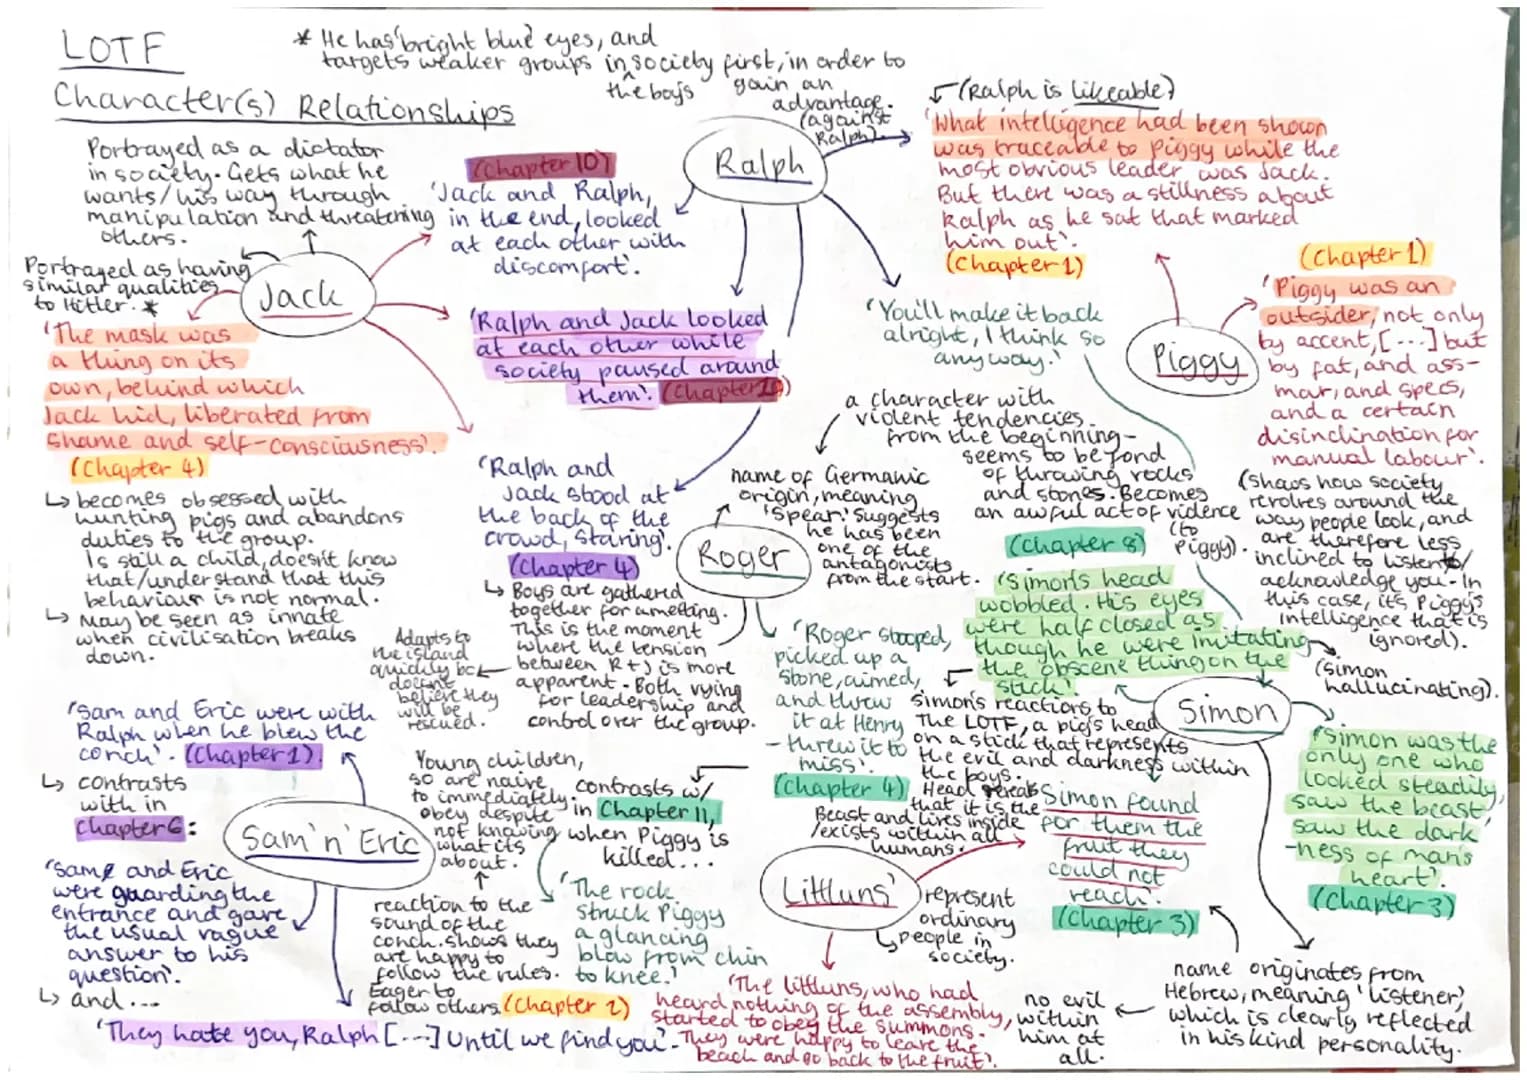 LOTF
Character(s) Relationships
* He has 'bright blue' eyes, and
targets weaker groups in society first, in order to
the boys
gain an
advantage.
(against
Ralph).
Portrayed as a dictator
in society. Gets what he
wants/his way through
manipulation and threatening
others.
Portrayed as having
similar qualities
to Hitler. *
Jack
'The mask was
a thing on its
own, behind which
Jack hid, liberated from
shame and self-consciausness'.
(Chapter 4)
↳ becomes obsessed with
hunting pigs and abandons
duties to the group.
Is still a child, doesn't know
that/understand that this
behaviour is not normal.
↳ May be seen as innate
when civilisation breaks
down.
(Chapter 10)
'Jack and Ralph,
in the end, looked
at each other with
discomfort'.
'Ralph and Jack looked
at each other while
society paused around
them'. (Chapter 10)
'Ralph and
Jack stood at
the back of the
crowd, staring'.
(Chapter 4)
↳ Boys are gathered
together for a meeting.
This is the moment
where the tension
between R+J is more
apparent. Both vying
for leadership and
control over the group.
Adapts to
the island
quickly bc
doesn't
believe they
will be
rescued.
Ralph
(Ralph is likeable)
'What intelligence had been shown
was traceable to Piggy while the
most obvious leader was Jack.
But there was a stillness about
Ralph as he sat that marked
him out'.
(Chapter 1)
'You'll make it back
alright, I think so
anyway.'
Piggy
(Chapter 1)
'Piggy was an
outsider, not only
by accent, [...] but
by fat, and ass-
mar, and specs,
and a certain
disinclination for
manual labour'.
(shows how society
revolves around the
way people look, and
are therefore less
inclined to listen to/
acknowledge you. In
this case, it's Piggy's
intelligence that is
ignored).
a character with
violent tendencies
from the beginning -
seems to be fond
of throwing rocks
and stones. Becomes
an awful act of violence
(to
Piggy).
name of Germanic
origin, meaning
'Spear.' Suggests
he has been
one of the
antagonists
from the start.
Roger
'Roger stooped,
picked up a
stone, aimed,
and threw
it at Henry
- threw it to
miss'.
(Chapter 4)
contrasts w/
in Chapter 11,
when Piggy is
killed...
'The rock
struck Piggy
a glancing
blow from chin
to knee.'
(Chapter 8)
'Simon's head
wobbled. His eyes
were half closed as
though he were imitating
the obscene thing on the
stick'
(Simon
hallucinating).
Simon's reactions to
The LOTF, a pig's head
on a stick that represents
the evil and darkness within
the boys.
Head
that it is the
Beast and lives inside
/exists within all
humans.
Simon
'Simon was the
only one who
looked steadily,
saw the beast'
saw the dark
-ness of man's
heart'.
(Chapter 3)
Simon found
for them the
fruit they
could not
reach'.
(Chapter 3)
name originates from
Hebrew, meaning 'listener',
which is clearly reflected
in his kind personality.
no evil
within
him at
all.
Littluns'
represent
ordinary
↳ people in
society.
'The littluns, who had
heard nothing of the assembly,
started to obey the summons.
They were happy to leave the
beach and go back to the fruit'.
'Sam and Eric were with
Ralph when he blew the
conch'. (Chapter 1)
↳ contrasts
with in
Chapter 6:
'Sam and Eric
were guarding the
entrance and gave
the usual vague
answer to his
question'.
↳ and ...
'They hate you, Ralph [...] Until we find you'.
Sam'n'Eric
Young children,
so are naive
to immediately
obey despite
not knowing
what its
about.
reaction to the
sound of the
conch. shows they
are happy to
follow the rules.
Eager to
follow others. (Chapter 2)